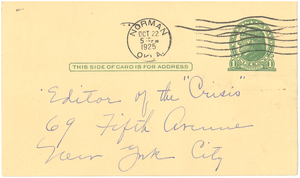 NORMAN
OCT 22
1925
OKLA.
THIS SIDE OF CARD IS FOR ADDRESS
Editor of the "Crisis"
69 Fifth Avenue
New York City